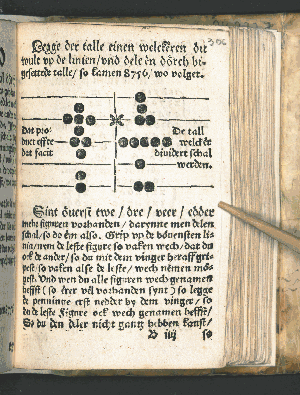 Legge der talle einen welckeren du
wult vp de linien/ vnd dele en dörch
gesettede talle/ so kamen 8756/ wo volget.
Dat pro=
duct effte
dat facit
De tall
welcker
diuidert schal
werden.
Sint öuerst twe/ dre/ veer/ edder
mehr figuren vorhanden/ darynne men delen
schal/ so do em also. Gryp vp de bouensten li
nia/nym de leste figure so vaken wech/ dat du
ock de ander/ so du mit dem vinger heraff
so vaken alse de leste/ wech nemen
gest. Vnd wen du alle figuren wech genamen
heffst (so erer vel vorhanden synt) so legge
de penninge erst nedder by dem vinger/ so
du de leste Figure ock wech genamen heffst/
So du den diler nicht gantz hebben kanst/
B iiij so